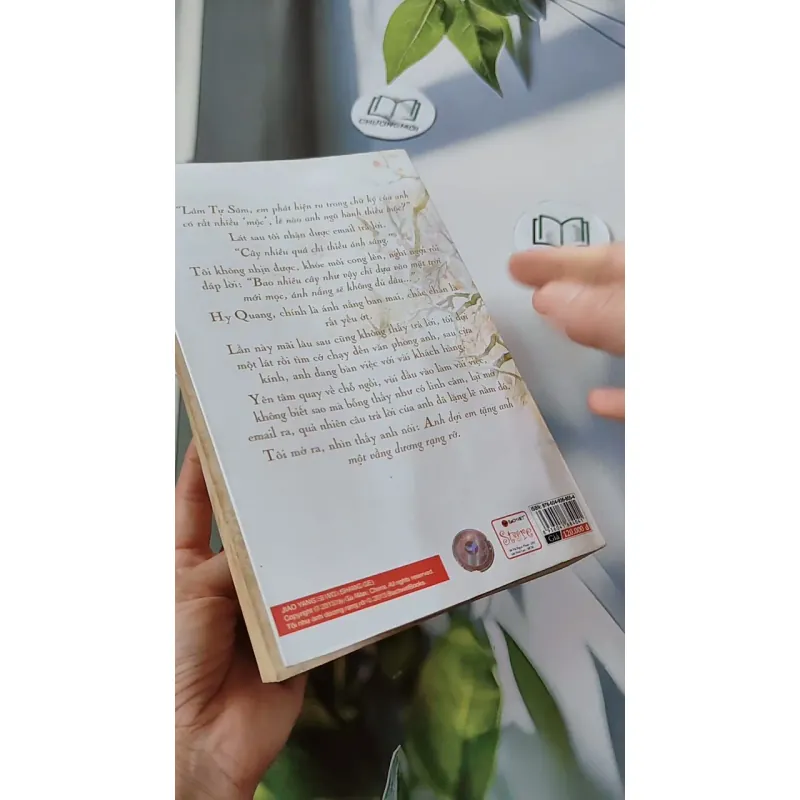 CHƯƠNG MỚI
"Lâm Tự Sâm, em phát hiện ra trong chữ ký của anh
có rất nhiều 'mộc', lẽ nào anh ngũ hành thiếu mộc?"
Lát sau tôi nhận được email trả lời.
"Cây nhiều quá chỉ thiếu ánh sáng."
Tôi không nhịn được, khóe môi cong lên, nghĩ ngợi rồi
đáp lời: "Bao nhiêu cây như vậy chỉ dựa vào mặt trời
mới mọc, ánh nắng sẽ không đủ đâu...
Hy Quang, chính là ánh nắng ban mai, chắc chắn là
rất yếu ớt.
Lần này mãi lâu sau cũng không thấy trả lời, tôi đợi
một lát rồi tìm cớ chạy đến văn phòng anh, sau cửa
kính, anh đang bàn việc với vài khách hàng.
Yên tâm quay về chỗ ngồi, vùi đầu vào làm vài việc,
không biết sao mà bỗng thấy như có linh cảm, lại mở
email ra, quả nhiên câu trả lời của anh đã lặng lẽ nằm đó.
Tôi mở ra, nhìn thấy anh nói: Anh đợi em tặng anh
một vầng dương rạng rỡ.
Store
Giá 120.000 đ
JIAO YANG SI WO (SHANG CE)
All rights reserved.